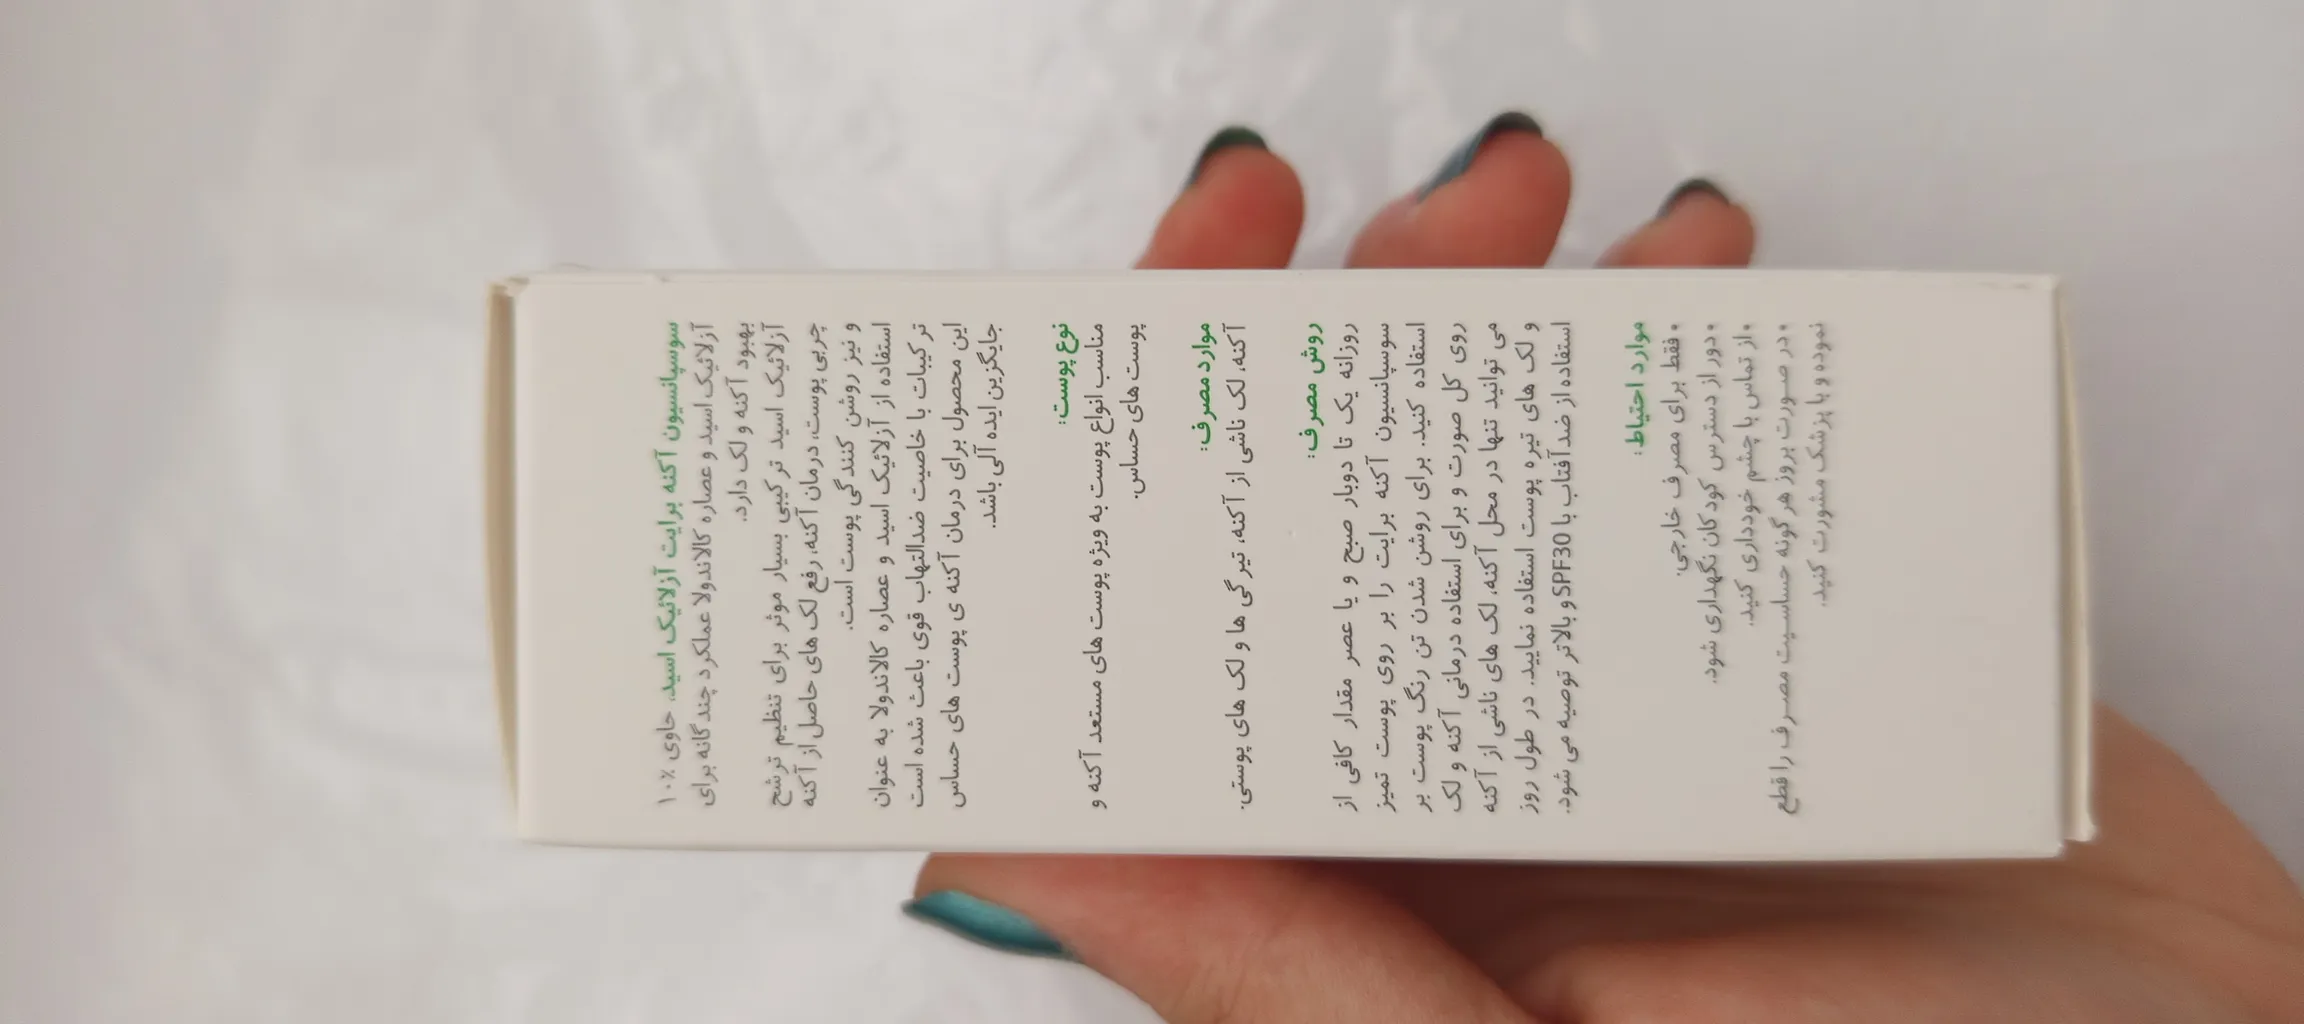 سوسپانسیون آکنه برایت آزلائیک اسید، حاوی ۱۰٪
آزلائیک اسید و عصاره کالاندولا عملکرد چندگانه برای
بهبود آکنه و لک دارد.
آزلائیک اسید ترکیبی بسیار موثر برای تنظیم ترشح
چربی پوست، درمان آکنه، رفع لک های حاصل از آکنه
و نیز روشن کنندگی پوست است.
استفاده از آزلائیک اسید و عصاره کالاندولا به عنوان
ترکیبات با خاصیت ضدالتهاب قوی باعث شده است
این محصول برای درمان آکنه ی پوست های حساس
جایگزین ایده آلی باشد.
نوع پوست:
مناسب انواع پوست به ویژه پوست های مستعد آکنه و
پوست های حساس.
موارد مصرف:
آکنه، لک ناشی از آکنه، تیرگی ها و لک های پوستی.
روش مصرف:
روزانه یک تا دوبار صبح و یا عصر مقدار کافی از
سوسپانسیون آکنه برایت را بر روی پوست تمیز
استفاده کنید. برای روشن شدن تن رنگ پوست بر
روی کل صورت و برای استفاده درمانی آکنه و لک
می توانید تنها در محل آکنه، لک های ناشی از آکنه
و لک های تیره پوست استفاده نمایید. در طول روز
استفاده از ضد آفتاب با SPF30 و بالاتر توصیه می شود.
موارد احتیاط:
• فقط برای مصرف خارجی.
• دور از دسترس کودکان نگهداری شود.
• از تماس با چشم خودداری کنید.
• در صورت بروز هرگونه حساسیت مصرف را قطع
نموده و با پزشک مشورت کنید.